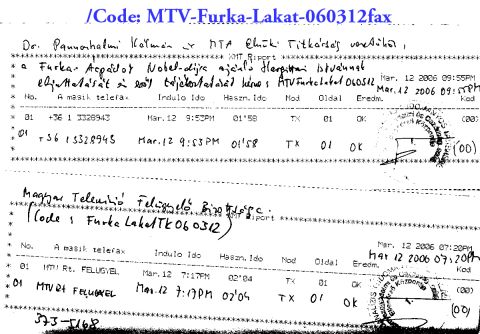 /Code: MTV-Furka-Lakat-060312fax
Dr. Pannonhalmi Kálmán MTA Elnöki Titkárság
XMT Riport
a Furka Árpádot Nobel-díjra ajánló Hargittai Istvánnak
Mar. 12 2006 09:55PM
MTVFurkaLakat060312
Mar 12 2006 09:55PM
No. A masik telefax Indulo Ido Haszn.Ido Mod Oldal Eredm. Kod
01 +36 1 3328943 Mar.12 9:53PM 01'58 TX 01 OK (00)
01 +36 1 3328943 Mar.12 9:53PM 01'58 TX 01 OK (00)
Magyar Televízió Felügyelő Bizottsága
XMT Riport
(Code: FurkaLakatTK060312)
Mar. 12 2006 07:20PM
Mar 12 2006 07:20PM
No. A masik telefax Indulo Ido Haszn.Ido Mod Oldal Eredm. Kod
01 MTV Rt. FELUGYEL Mar.12 7:17PM 02'04 TX 01 OK (00)
01 MTV Rt FELUGYEL Mar.12 7:17PM 02'04 TX 01 OK (00)
373-5168